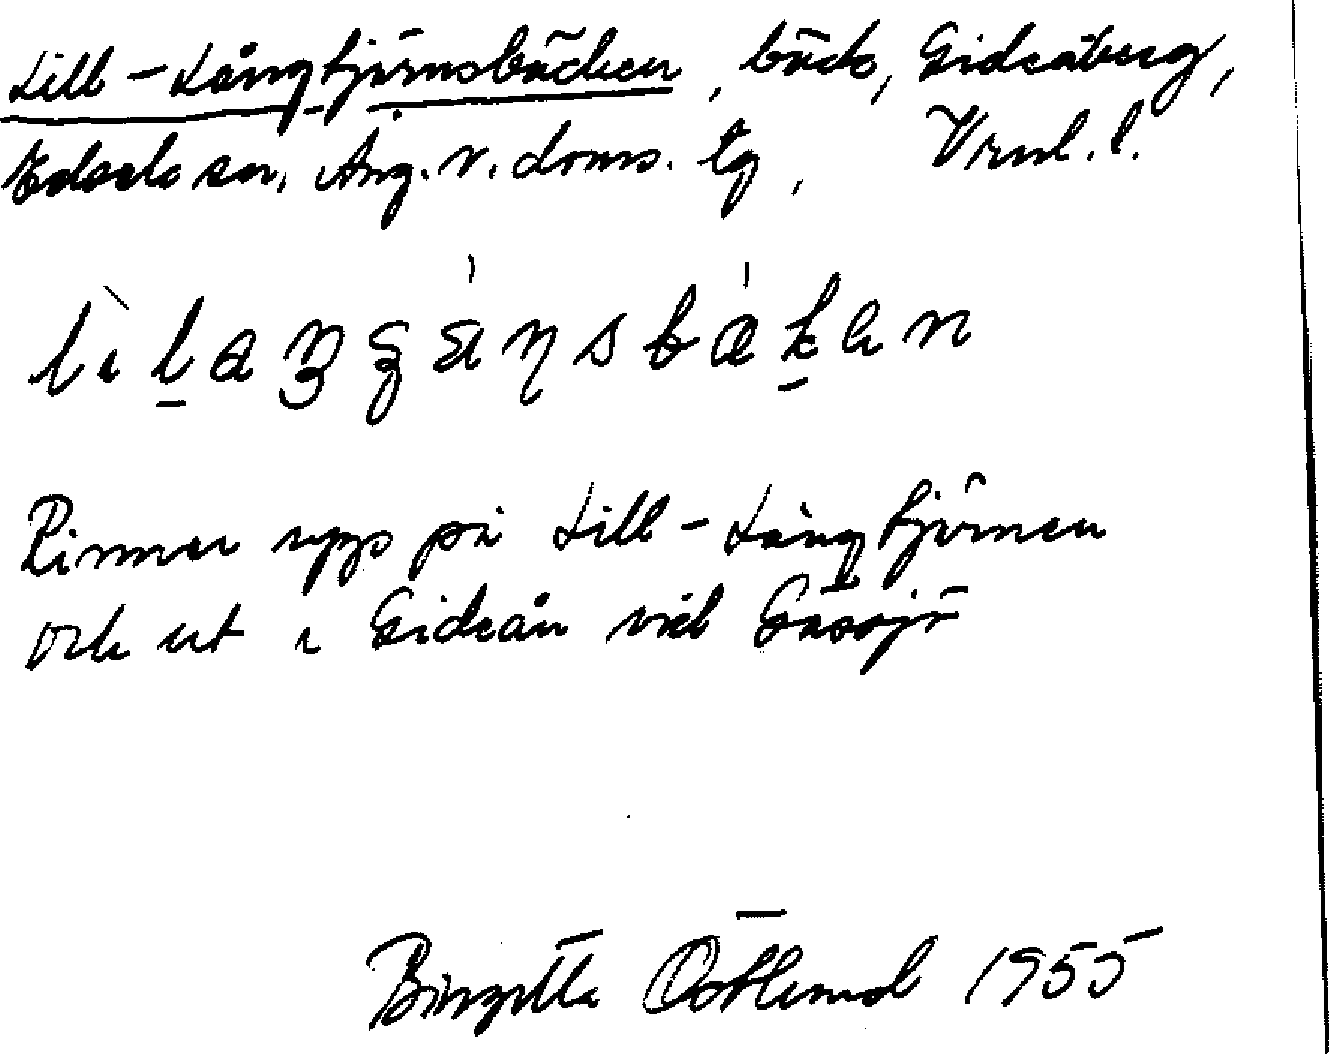 Lill-Långtjärnsbäcken, bäck, Gideåberg,
Edsele sn, Ång. v. doms. tg, Vrnl. l.
Rinner upp på Lill-Långtjärnen
och ut i Gideån vid Gåssjö
Birgitta Östlund 1955